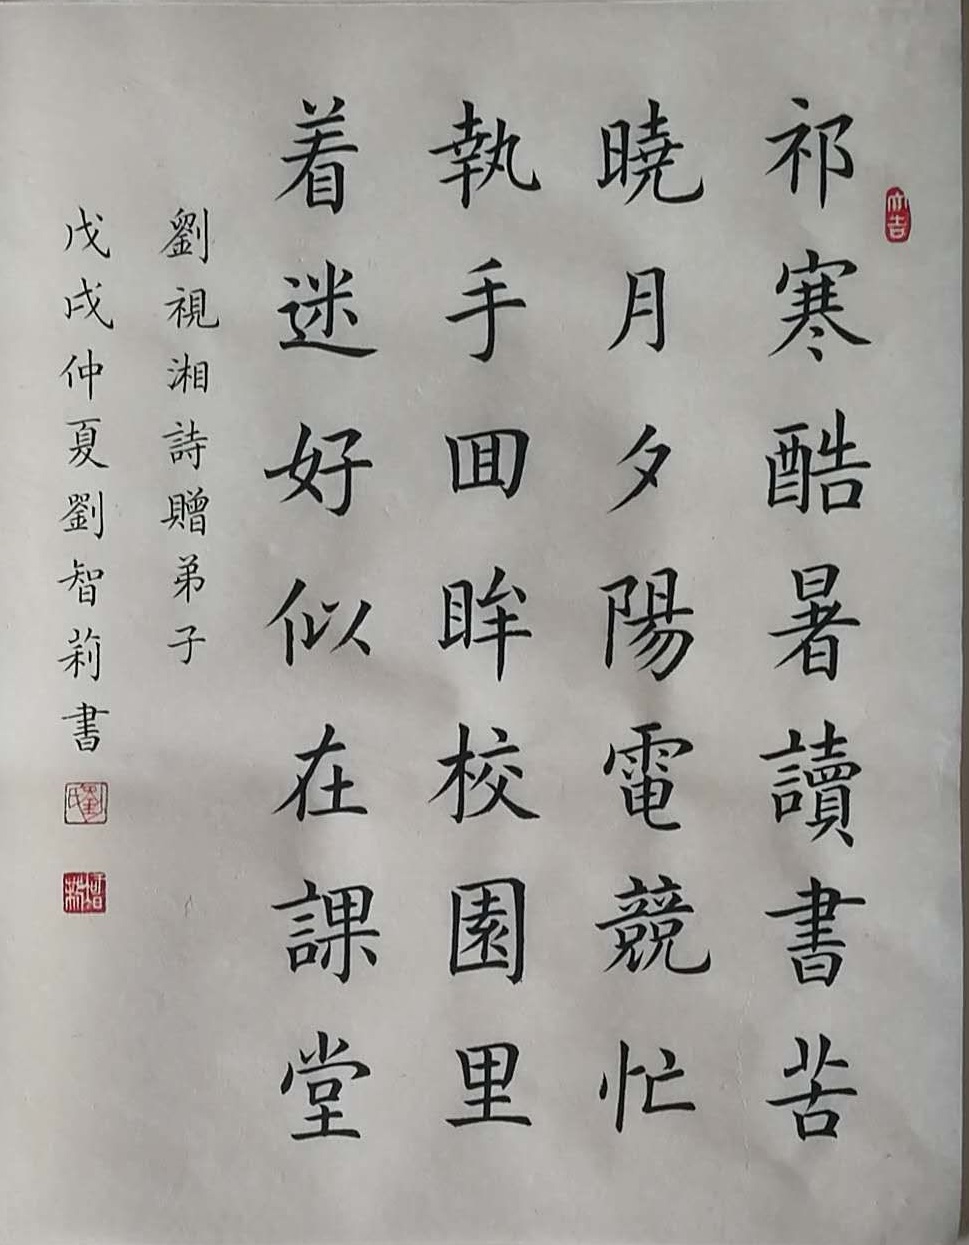 祁寒酷暑讀書苦
曉月夕陽電競忙
執手囬眸校園里
着迷好似在課堂
劉視湘詩贈弟子
戊戌仲夏劉智莉書
大吉
劉氏
智莉